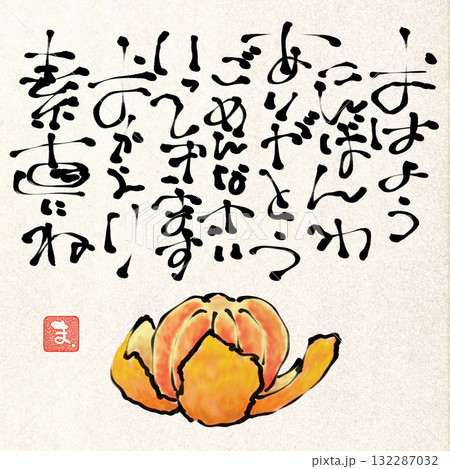 おはよう
こんばんわ
ありがとう
ごめんなさい
いってきます
おかえり
素直にね
ま.
PIXTA
132287032